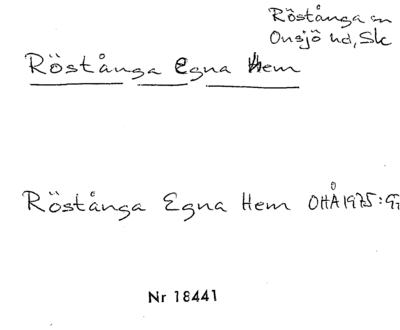 Röstånga sn
Onsjö hd, Sk
Röstånga Egna Hem
Röstånga Egna Hem OHÅ 1975:
Nr 18441